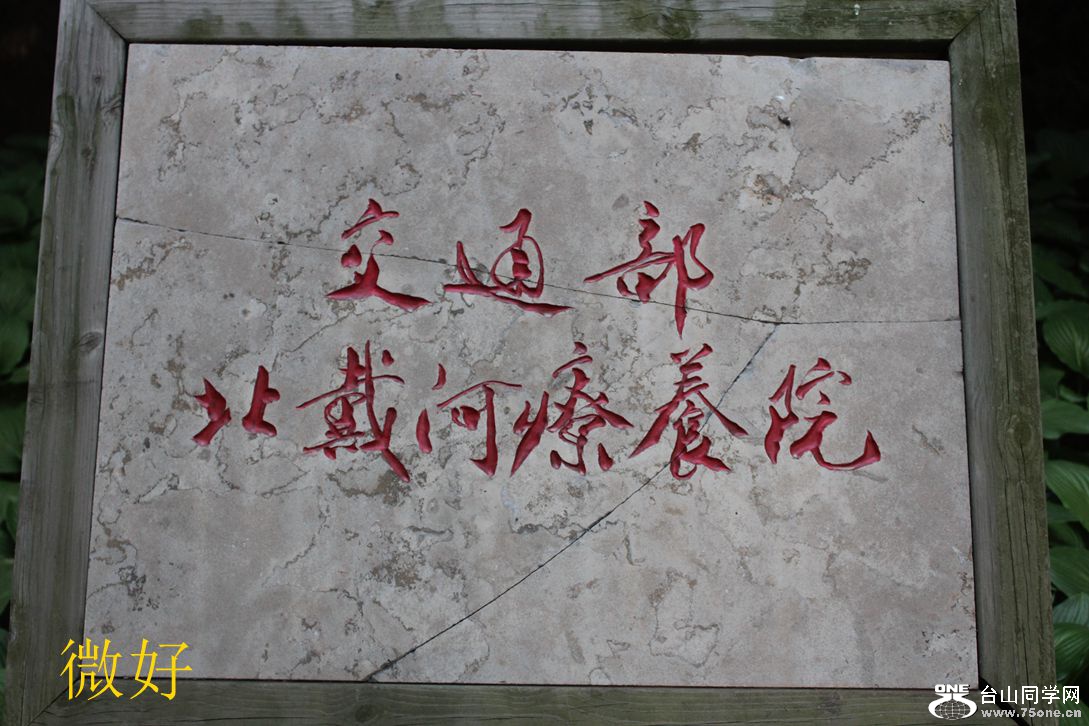 交通部
北戴河療養院
微好
ONE
台山同学网
www.75one.cn